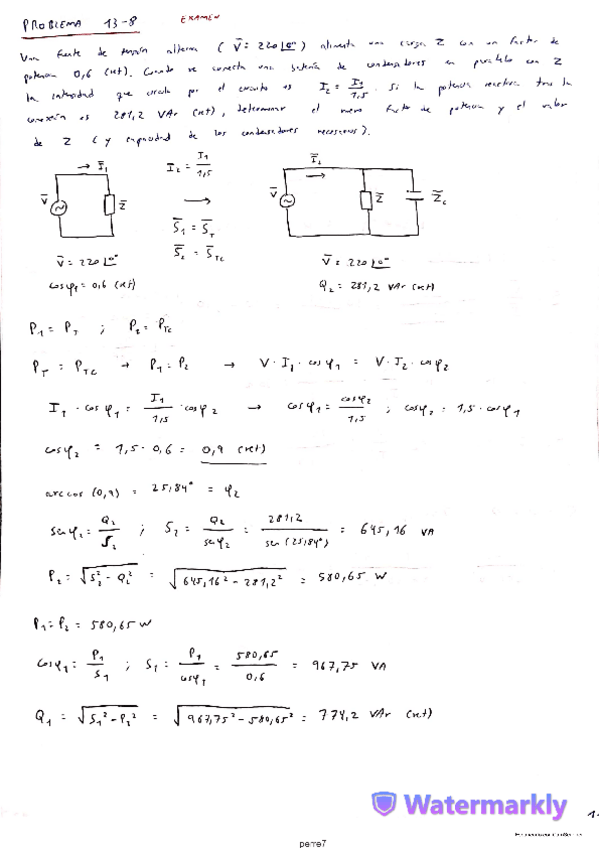 PROBLEMA 13-8 EXAMEN
Una fuente de tensión alterna ( V̄ = 220 ∠0° ) alimenta una carga Z con un factor de
potencia 0,6 (ret). Cuando se conecta una batería de condensadores en paralelo con Z
la intensidad que circula por el circuito es I₂ = I₁/1,5. Si la potencia reactiva tras la
conexión es 281,2 VAr (ret), determinar el nuevo factor de potencia y el valor
de Z ( y capacidad de los condensadores necesarios).
→ Ī₁ I₂ = I₁/1,5 Ī₂ →
V̄ Z̄ → V̄ Z̄ Z̄c
S̄₁ = S̄T
S̄₂ = S̄TC
V̄ = 220 ∠0° V̄ = 220 ∠0°
cosφ₁ = 0,6 (ret) Q₂ = 281,2 VAr (ret)
P₁ = PT ; P₂ = PTC
PT = PTC → P₁ = P₂ → V · I₁ · cosφ₁ = V · I₂ · cosφ₂
I₁ · cosφ₁ = I₁/1,5 · cosφ₂ → cosφ₁ = cosφ₂/1,5 ; cosφ₂ = 1,5 · cosφ₁
cosφ₂ = 1,5 · 0,6 = 0,9 (ret)
arccos (0,9) = 25,84° = φ₂
senφ₂ = Q₂/S₂ ; S₂ = Q₂/senφ₂ = 281,2/sen (25,84°) = 645,16 VA
P₂ = √(S₂² - Q₂²) = √(645,16² - 281,2²) = 580,65 W
P₁ = P₂ = 580,65 W
cosφ₁ = P₁/S₁ ; S₁ = P₁/cosφ₁ = 580,65/0,6 = 967,75 VA
Q₁ = √(S₁² - P₂²) = √(967,75² - 580,65²) = 774,2 VAr (ret)
Watermarkly
perre7